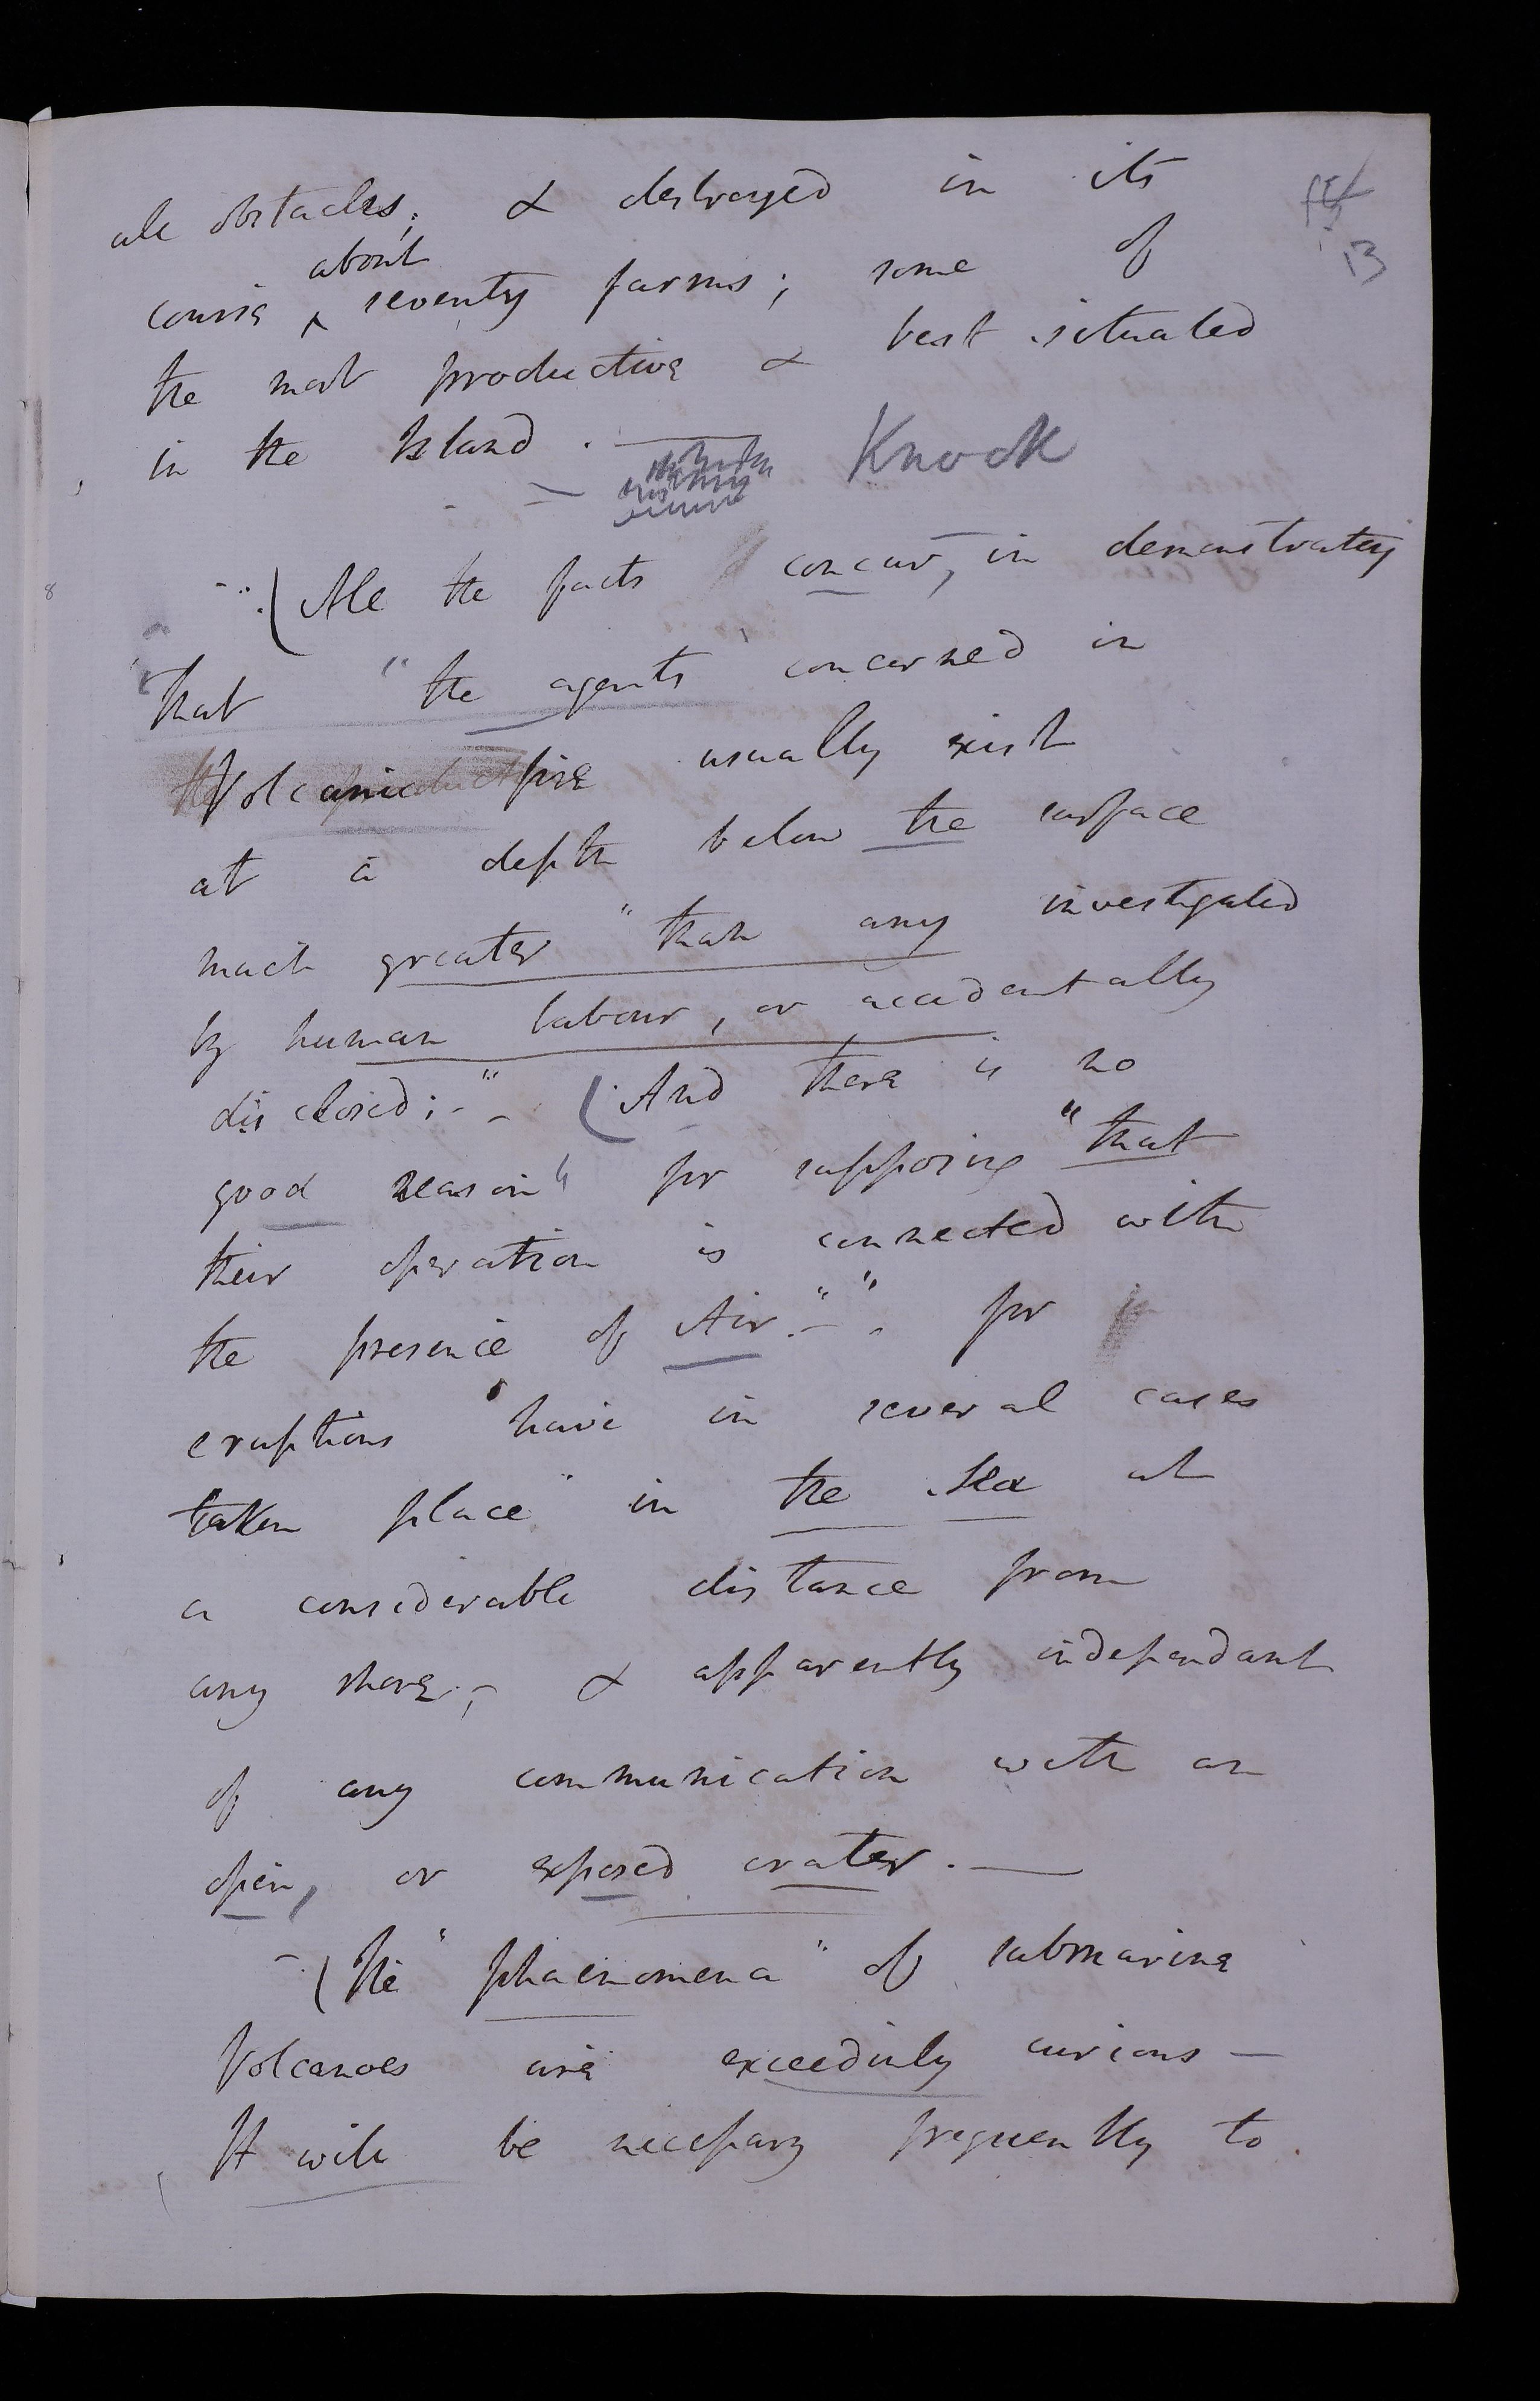 13
all obstacles; & destroyed in its
about
course ^ seventy farms; some of
the most productive & best situated
in the Island. —
Knock
(All the facts concur, in demonstrating
that "the agents concerned in
Volcanic fire usually exist
at a depth below the surface
much greater "than any investigated
by human labour, or accidentally
disclosed; - " - (And there is no
good reason" for supposing "that
their operation is connected with
the presence of Air. - " " for
eruptions "have in several cases
taken place" in the Sea at
a considerable distance from
any shore; - & apparently independant
of any communication with an
open, or exposed crater. —
- (The "phaenomena" of submarine
Volcanoes are exceedinly curious —
It will be necessary frequently to